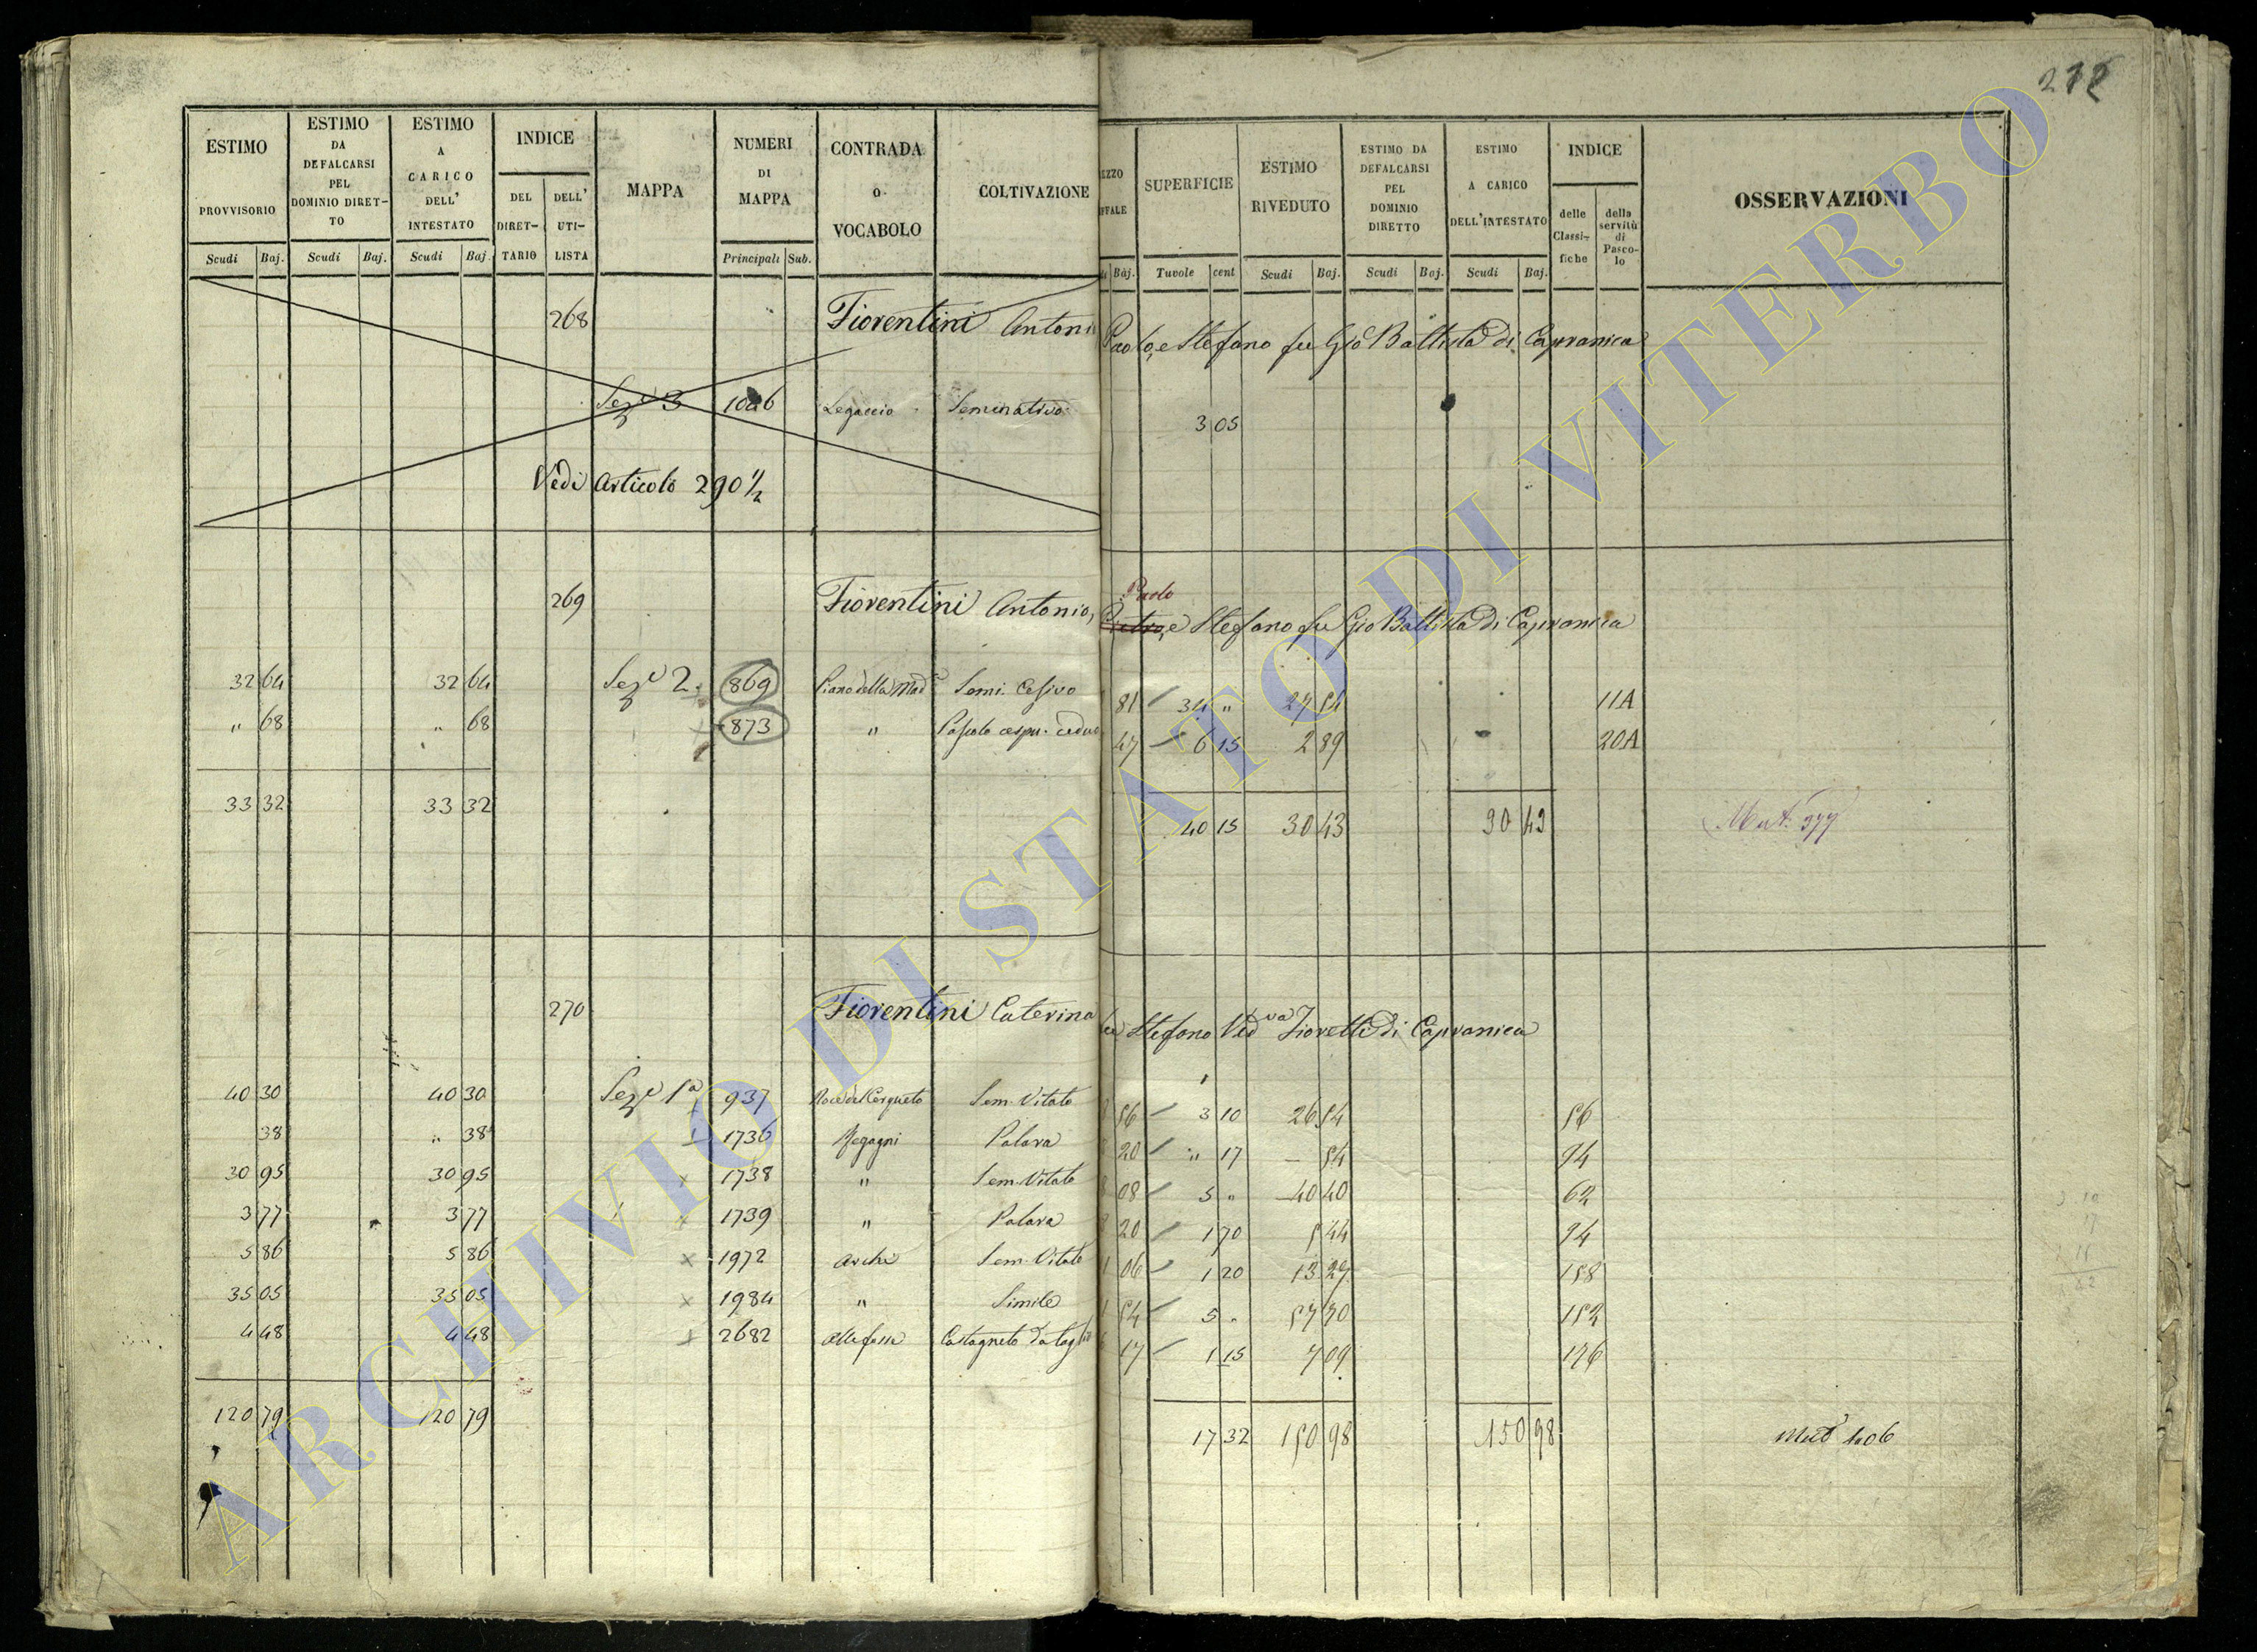 212
ESTIMO PROVVISORIO Scudi Baj.
ESTIMO DA DEFALCARSI PEL DOMINIO DIRET-TO Scudi Baj.
ESTIMO A CARICO DELL' INTESTATO Scudi Baj.
INDICE DEL DIRET-TARIO DELL' UTI-LISTA
MAPPA
NUMERI DI MAPPA Principali Sub.
CONTRADA o VOCABOLO
COLTIVAZIONE
EZZO FFALE Baj.
SUPERFICIE Tavole cent
ESTIMO RIVEDUTO Scudi Baj.
ESTIMO DA DEFALCARSI PEL DOMINIO DIRETTO Scudi Baj.
ESTIMO A CARICO DELL'INTESTATO Scudi Baj.
INDICE delle Classi-fiche della servitù di Pasco-lo
OSSERVAZIONI
268 Fiorentini Antonio Paolo, e Stefano fu Gio Battista di Capranica
Seze 3 Legaccio Seminativo 3 05
Vedi Articolo 290 1/2
Paolo
269 Fiorentini Antonio, Pietro, e Stefano fu Gio Battista di Capranica
32 64 32 64 Seze 2 869 Piano della Mad Semi. Cesivo 81 34 " 27 54 11A
" 68 " 68 873 " Pascolo cespu. ceduo 47 6 15 2 89 20A
33 32 33 32 40 15 30 43 30 43 Mut. 377
270 Fiorentini Caterina fu Stefano Ved va Fioretti di Capranica
40 30 40 30 Seze 1a 937 Sem. Vitato 56 3 10 26 54 56
38 " 38 1736 Palara 20 " 17 — 54 94
30 95 30 95 1738 " Sem. Vitato 08 5 " 40 40 62
3 77 3 77 1739 " Palara 20 1 70 5 44 94
5 86 5 86 1972 Archi Sem. Vitato 06 1 20 13 27 158
35 05 35 05 1984 " Simile 54 5 " 57 70 152
4 48 4 48 2682 alle fosse Castagneto da taglio 17 1 15 7 09 176
120 79 120 79 17 32 150 98 150 98
ARCHIVIO DI STATO DI VITERBO